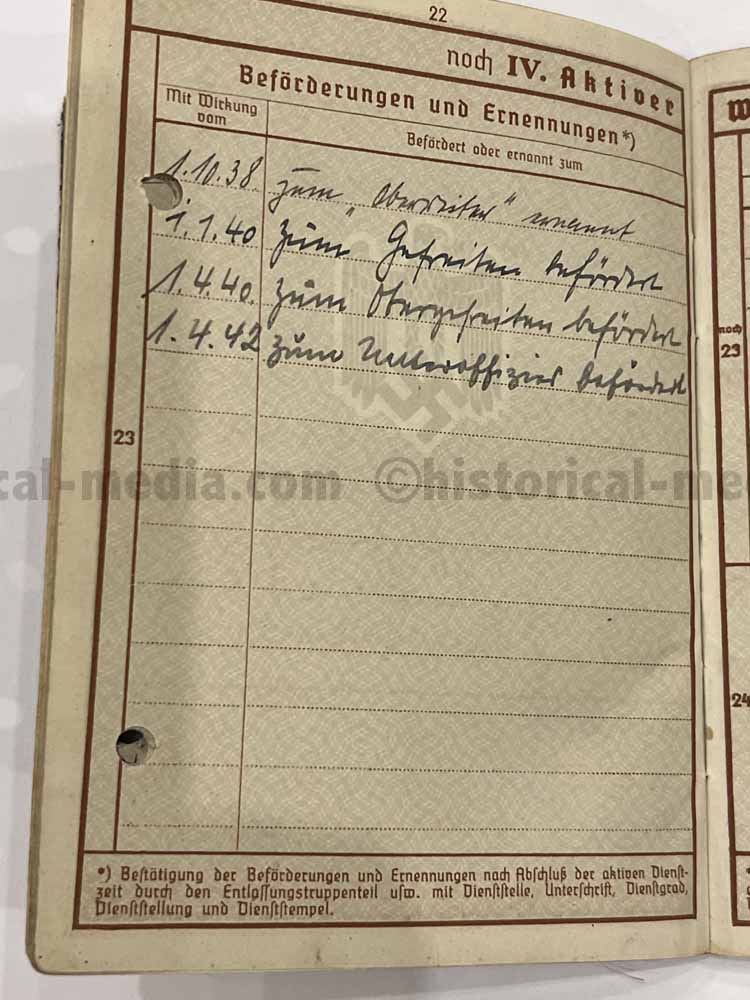 22
noch IV. Aktiver
Beförderungen und Ernennungen*)
Mit Wirkung
vom
Befördert oder ernannt zum
1.10.38 zum "Oberreiter" ernannt
1.1.40 zum Gefreiten befördert
1.4.40. zum Obergefreiten befördert
1.4.42 zum Unteroffizier befördert
23
*) Bestätigung der Beförderungen und Ernennungen nach Abschluß der aktiven Dienst-
zeit durch den Entlassungstruppenteil usw. mit Dienststelle, Unterschrift, Dienstgrad,
Dienststellung und Dienststempel.
W
noch
23
24
cal-media.com ©historical-me